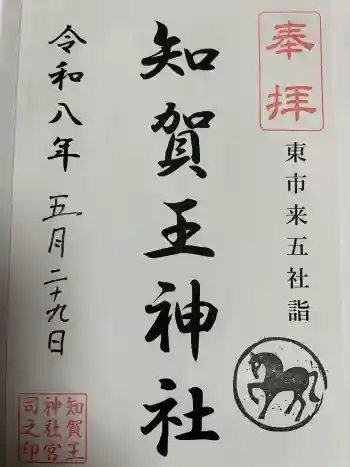 奉拝
東市来五社詣
知賀王神社
令和八年五月二十九日
知賀王
神社宮
司之印